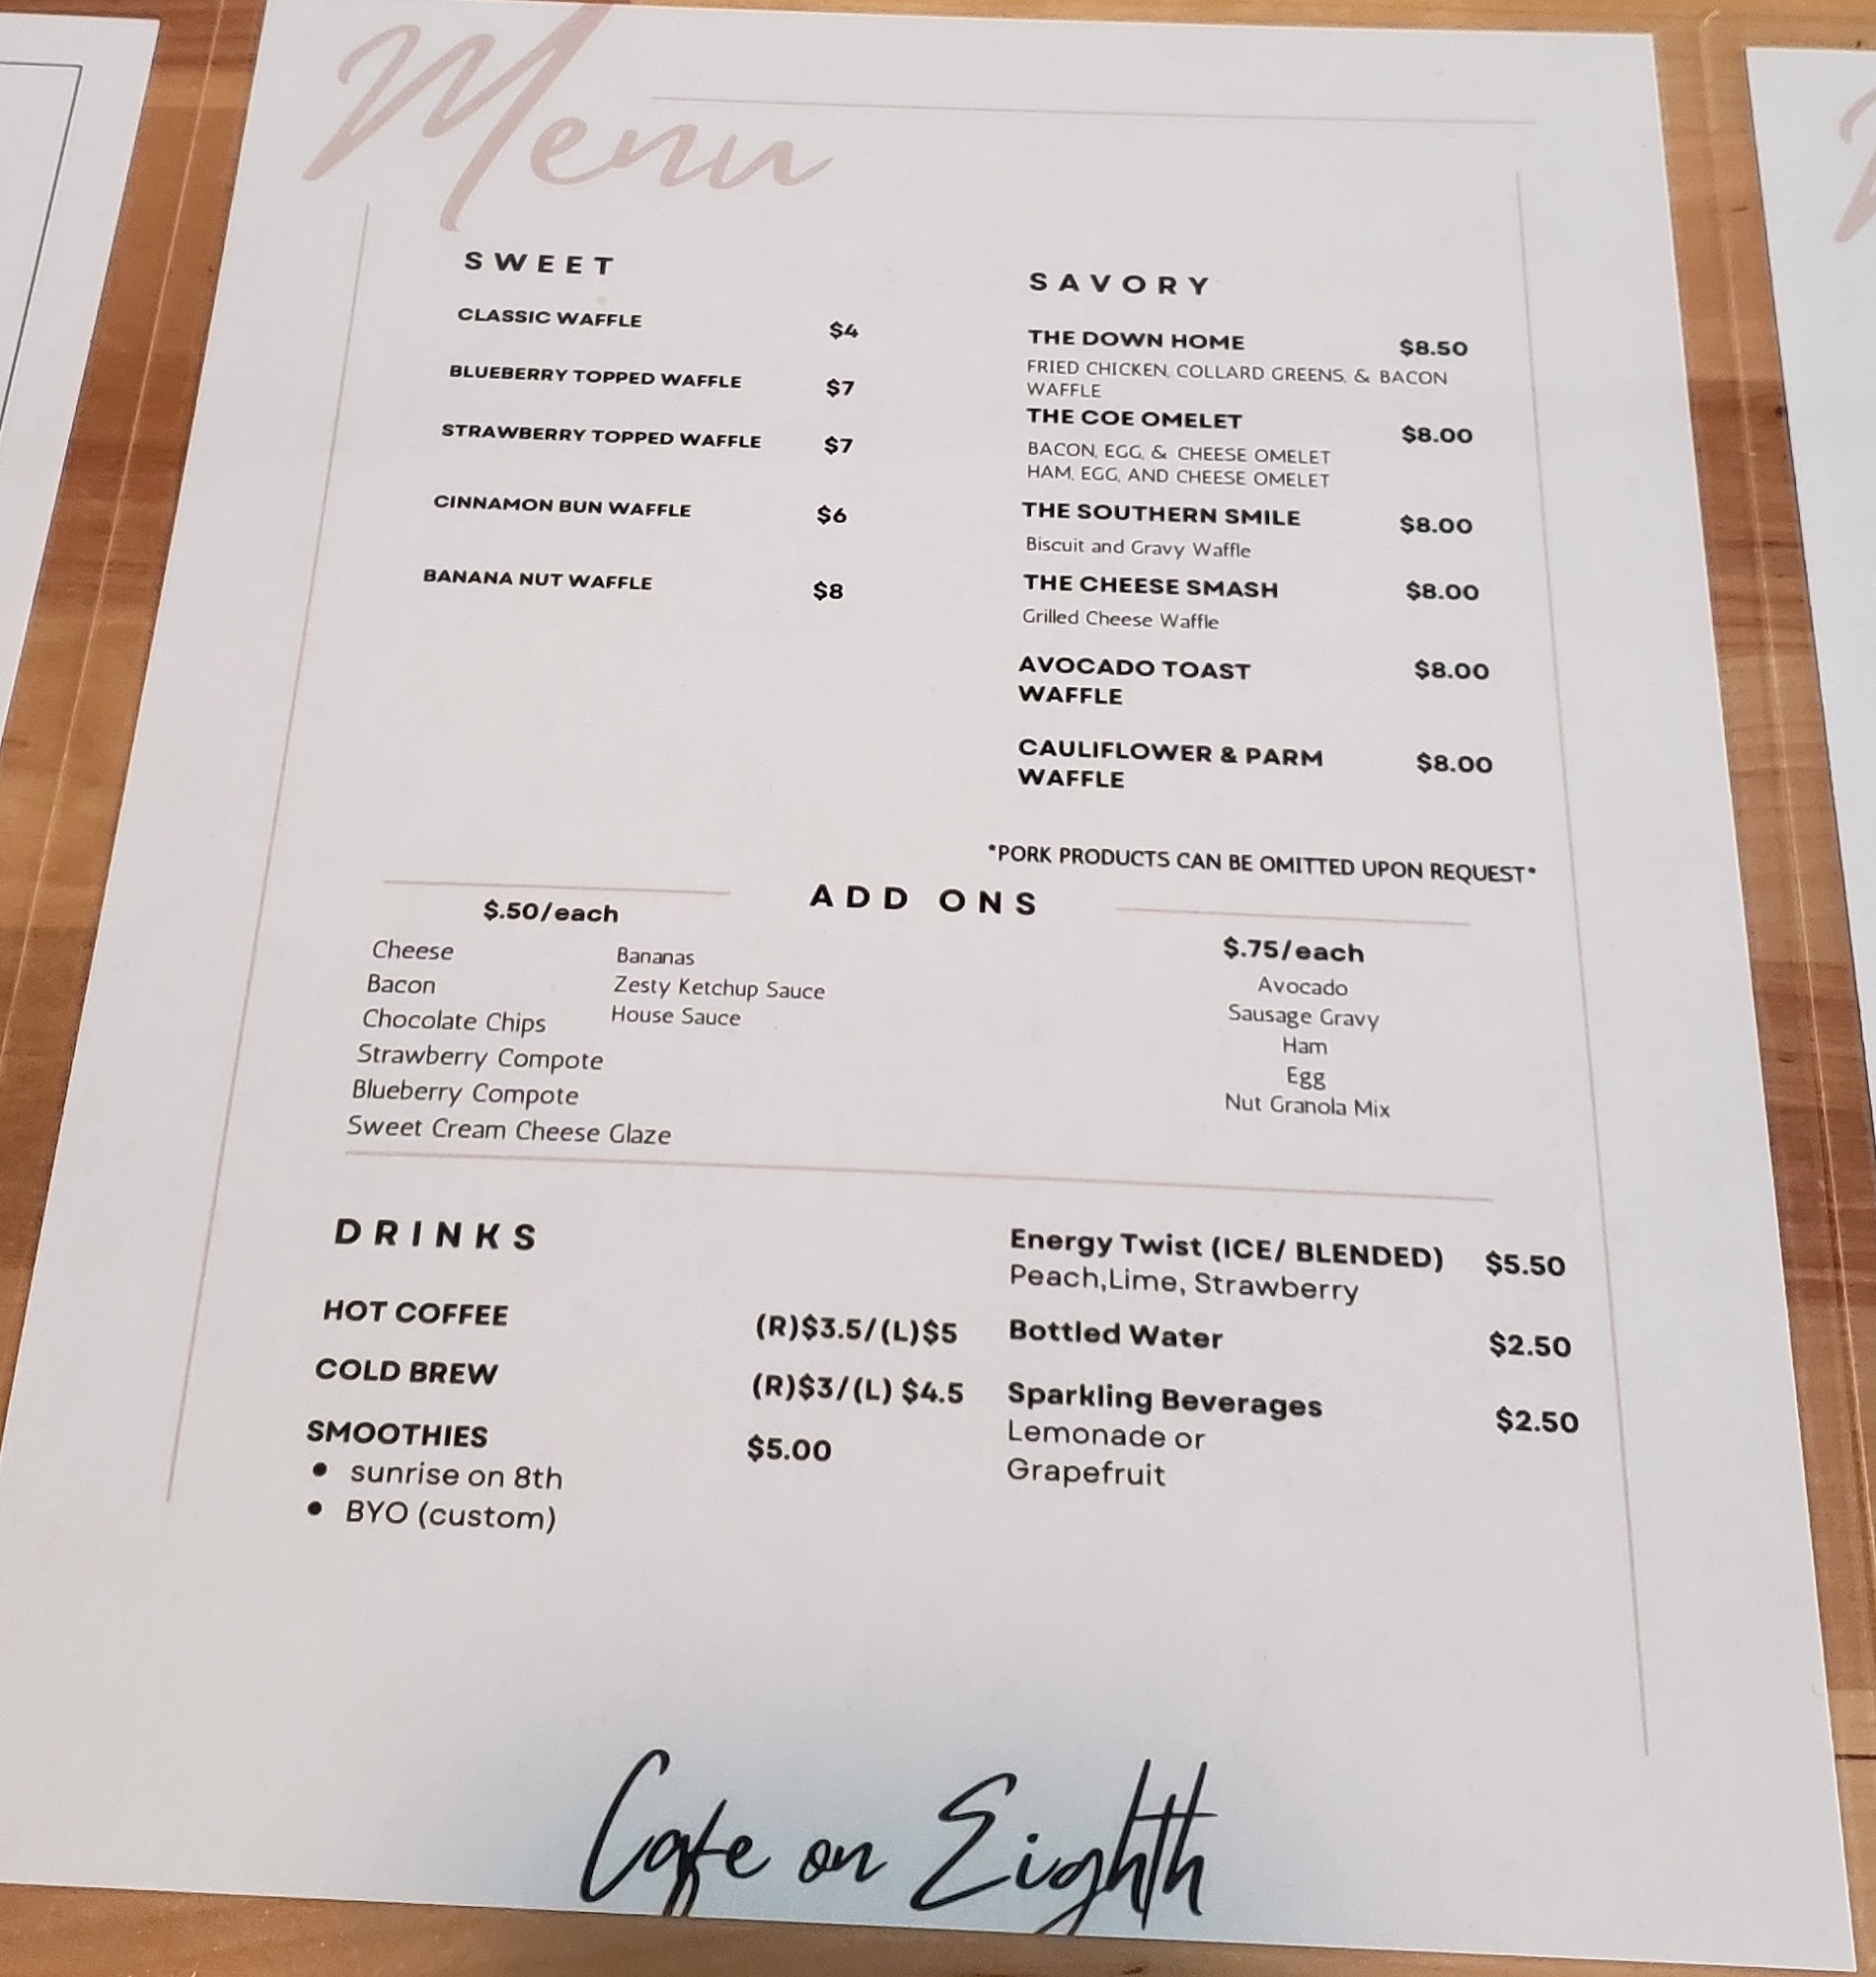 Menu
SWEET
CLASSIC WAFFLE $4
BLUEBERRY TOPPED WAFFLE $7
STRAWBERRY TOPPED WAFFLE $7
CINNAMON BUN WAFFLE $6
BANANA NUT WAFFLE $8
SAVORY
THE DOWN HOME $8.50
FRIED CHICKEN, COLLARD GREENS, & BACON
WAFFLE
THE COE OMELET $8.00
BACON, EGG, & CHEESE OMELET
HAM, EGG, AND CHEESE OMELET
THE SOUTHERN SMILE $8.00
Biscuit and Gravy Waffle
THE CHEESE SMASH $8.00
Grilled Cheese Waffle
AVOCADO TOAST $8.00
WAFFLE
CAULIFLOWER & PARM $8.00
WAFFLE
*PORK PRODUCTS CAN BE OMITTED UPON REQUEST*
ADD ONS
$.50/each
Cheese
Bacon
Chocolate Chips
Strawberry Compote
Blueberry Compote
Sweet Cream Cheese Glaze
Bananas
Zesty Ketchup Sauce
House Sauce
$.75/each
Avocado
Sausage Gravy
Ham
Egg
Nut Granola Mix
DRINKS
HOT COFFEE (R)$3.5/(L)$5
COLD BREW (R)$3/(L) $4.5
SMOOTHIES $5.00
• sunrise on 8th
• BYO (custom)
Energy Twist (ICE/ BLENDED) $5.50
Peach,Lime, Strawberry
Bottled Water $2.50
Sparkling Beverages $2.50
Lemonade or
Grapefruit
Cafe on Eighth